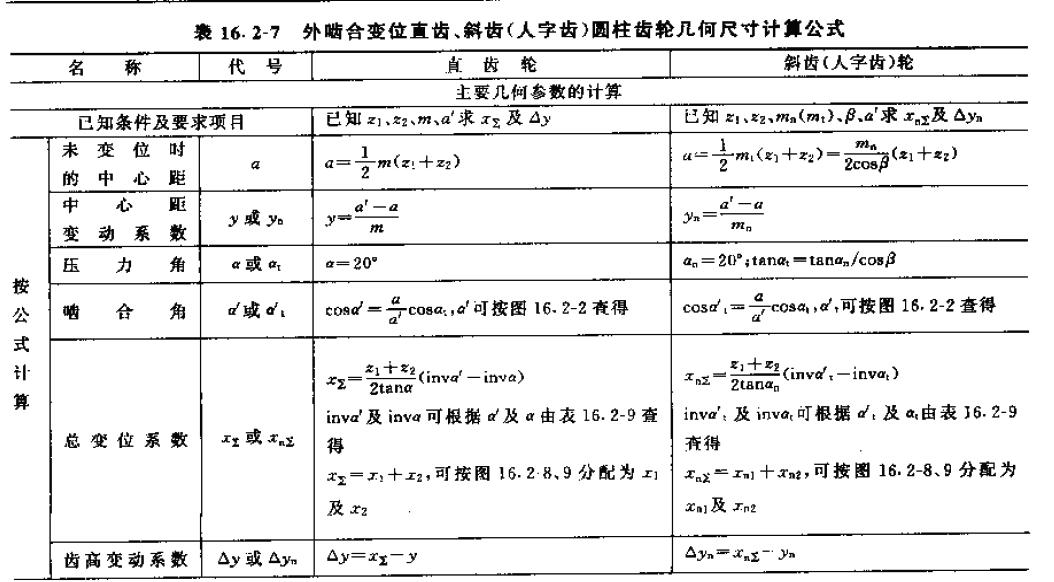 表 16.2-7 外啮合变位直齿、斜齿(人字齿)圆柱齿轮几何尺寸计算公式
名 称 代 号 直 齿 轮 斜齿(人字齿)轮
主要几何参数的计算
已知条件及要求项目 已知 z₁、z₂、m、a′求 x_Σ 及 Δy 已知 z₁、z₂、mₙ(mₜ)、β、a′求 x_nΣ 及 Δyₙ
按公式计算
未变位时的中心距 a a=1/2 m(z₁+z₂) a=1/2 mₜ(z₁+z₂)=mₙ/2cosβ (z₁+z₂)
中心距变动系数 y 或 yₙ y=a′-a/m yₙ=a′-a/mₙ
压 力 角 α 或 αₜ α=20° αₙ=20°;tanαₜ=tanαₙ/cosβ
啮 合 角 α′或 α′ₜ cosα′=a/a′ cosαₜ,α′可按图 16.2-2 查得 cosα′ₜ=a/a′ cosαₜ,α′ₜ可按图 16.2-2 查得
总变位系数 x_Σ 或 x_nΣ
x_Σ=z₁+z₂/2tanα (invα′-invα)
invα′及 invα 可根据 α′及 α 由表 16.2-9 查
得
x_Σ=x₁+x₂,可按图 16.2-8、9 分配为 x₁
及 x₂
x_nΣ=z₁+z₂/2tanαₙ (invα′ₜ-invαₜ)
invα′ₜ 及 invαₜ可根据 α′ₜ 及 αₜ由表 16.2-9
查得
x_nΣ=xₙ₁+xₙ₂,可按图 16.2-8、9 分配为
xₙ₁及 xₙ₂
齿高变动系数 Δy 或 Δyₙ Δy=x_Σ-y Δyₙ=x_nΣ-yₙ